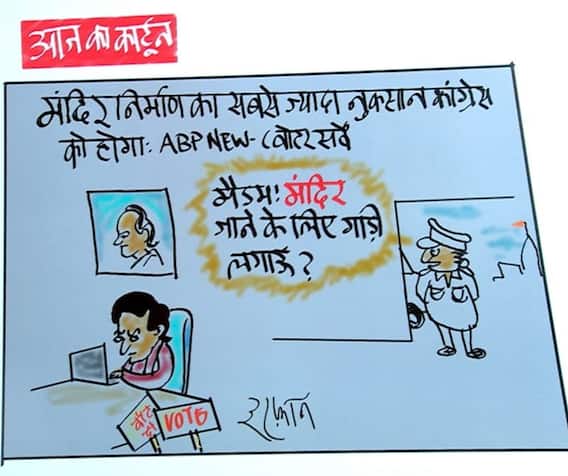 आज का कार्टून
मंदिर निर्माण का सबसे ज्यादा नुकसान कांग्रेस
को होगा: ABP NEW-Cवोटर सर्वे
मैडम! मंदिर
जाने के लिए गाड़ी
लगाऊँ?
वोट दो
VOTE
इरफ़ान